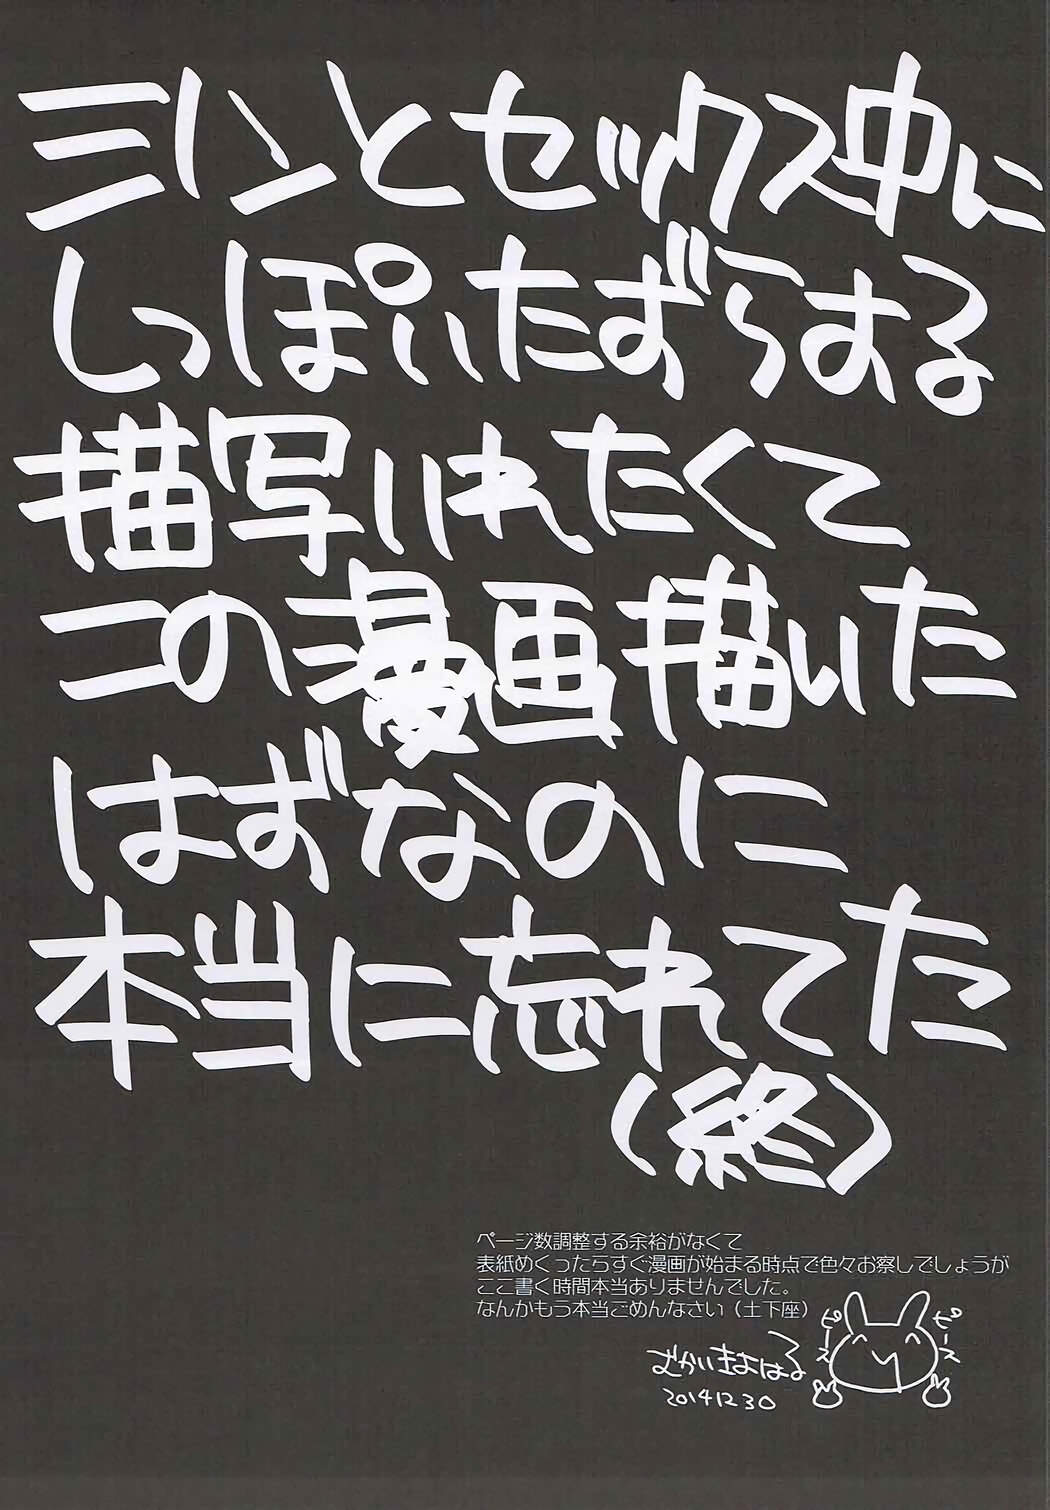 ミリンとセックス中に
しっぽいたずらする
描写いれたくて
この漫画描いた
はずなのに
本当に忘れてた
(終)
ページ数調整する余裕がなくて
表紙めくったらすぐ漫画が始まる時点で色々お察しでしょうが
ここ書く時間本当ありませんでした。
なんかもう本当ごめんなさい（土下座）
むかいまさはる
20141230
ピース
ピース